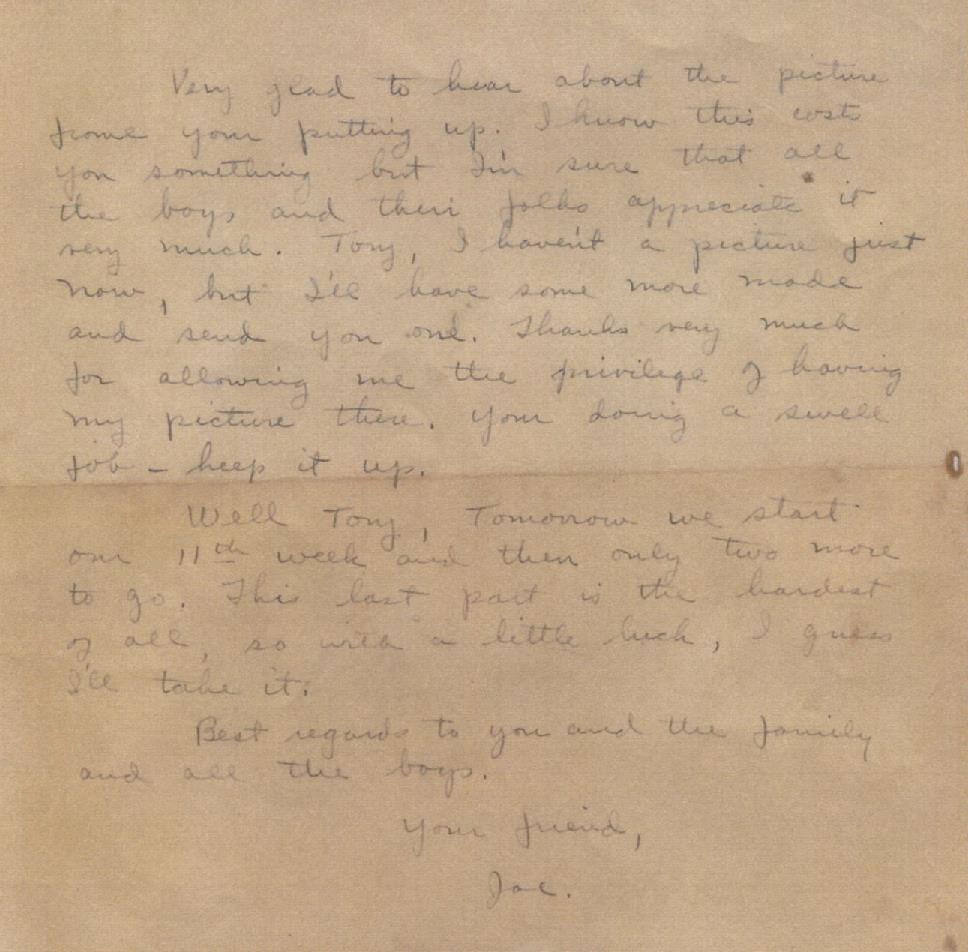 Very glad to hear about the picture
frame your putting up. I know this costs
you something but I'm sure that all
the boys and their folks appreciate it
very much. Tony, I haven't a picture just
now, but I'll have some more made
and send you one. Thanks very much
for allowing me the privilege of having
my picture there. Your doing a swell
job - keep it up.
Well Tony, Tomorrow we start
our 11th week and then only two more
to go. This last part is the hardest
of all, so with a little luck, I guess
I'll take it.
Best regards to you and the family
and all the boys.
Your friend,
Joe.